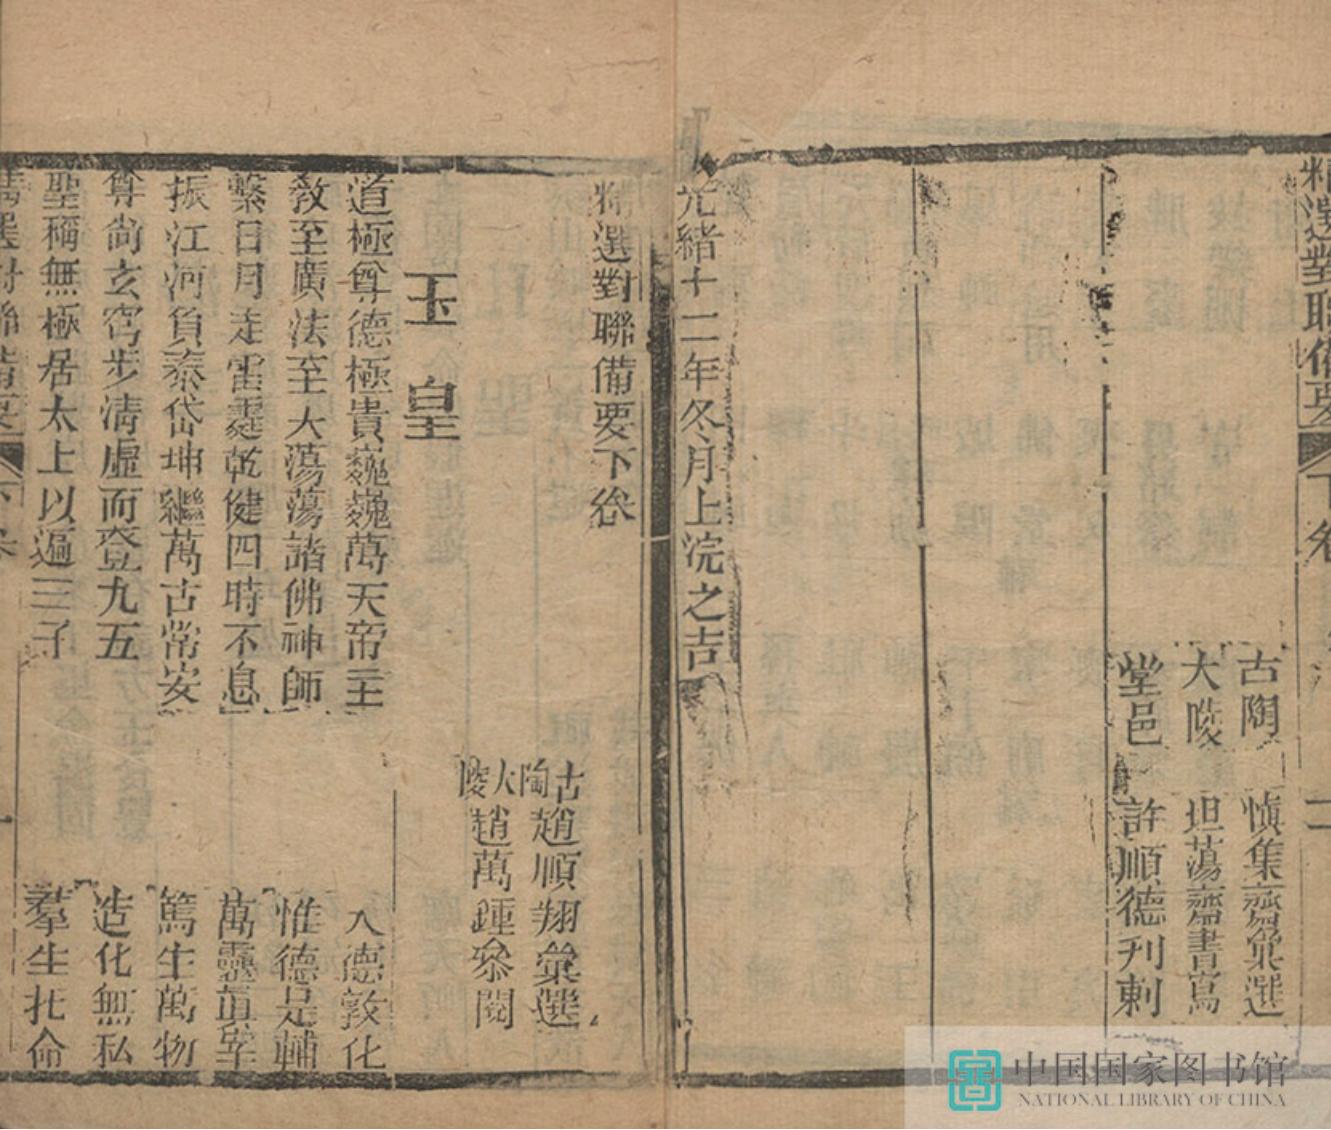 精選對聯備要 下卷 二
古陶 慎集齋彙選
大陵 坦蕩齋書寫
堂邑 許順德刋刺
光緒十二年冬月上浣之吉
精選對聯備要下卷
古陶趙順翔彙選
大陵趙萬鍾叅閱
玉皇
道極尊德極貴巍巍萬天帝主 大德敦化
教至廣法至大蕩蕩諸佛神師 惟德是輔
繫日月走雷霆乾健四時不息 萬靈真宰
振江河負泰岱坤繼萬古常安 篤生萬物
尊尚玄穹步清虛而登九五 造化無私
聖稱無極居太上以遍三子 羣生托命
精選對聯備要 下卷 一
中国国家图书馆
NATIONAL LIBRARY OF CHINA